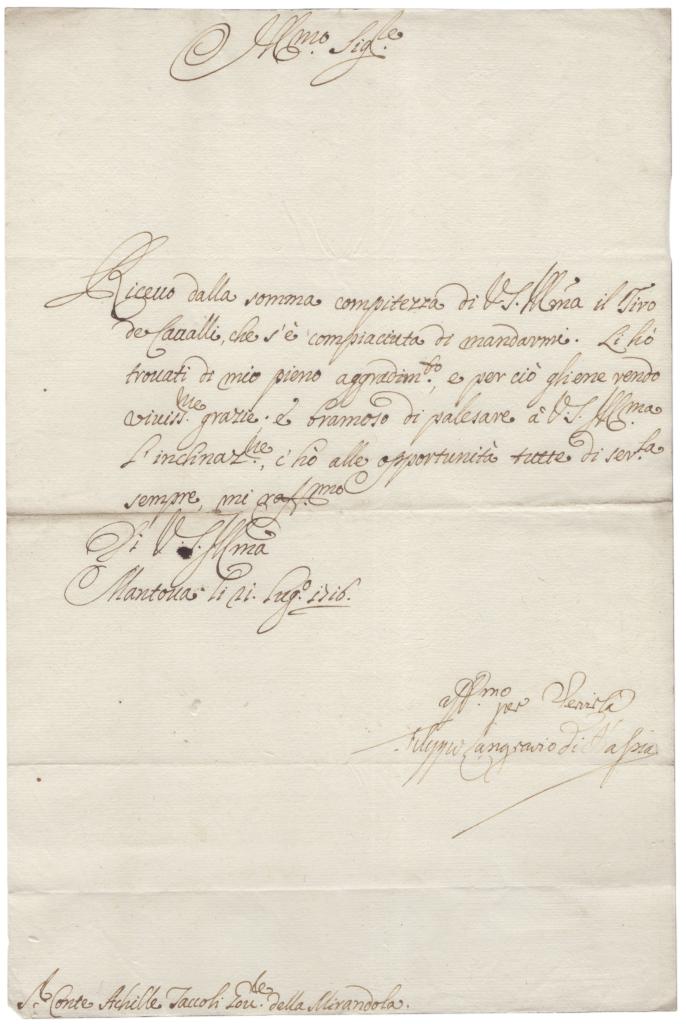 Illmo. Sigle.
Riceuo dalla somma compitezza di V. S. Illma il Tiro
de Caualli, che s'è compiaciuta di mandarmi. Li hò
trouati di mio pieno aggradimto., e per ciò gliene rendo
viuissme grazie. e bramoso di palesare à V. S. Illma
L'inclinazne., c'hò alle opportunità tutte di serula
sempre, mi raffmo
Di V. S. Illma
Mantoua li 21. Lugo. 1716.
affmo per Seruirla
Filippo Langravio di Hassia
Sr. Conte Achille Taccoli Goure. della Mirandola.